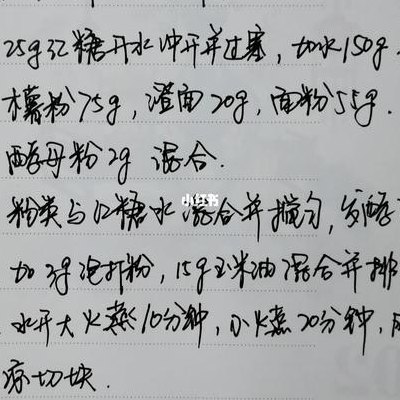 25g红糖开水冲开并过塞，加水150g.
木薯粉75g，澄面20g，面粉55g.
酵母粉2g 混合.
粉类与红糖水混合并搅匀，发酵
小红书
加3g泡打粉，15g玉米油混合并排
水开大火蒸10分钟，小火蒸20分钟，
凉切块.